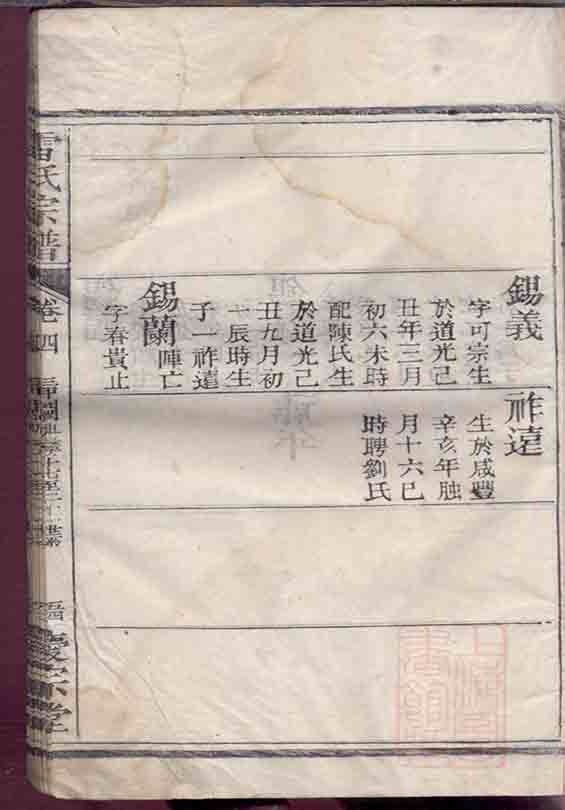 錫義
字可宗生
於道光己
丑年三月
初六未時
配陳氏生
於道光己
丑九月初
一辰時生
子一祚遠
錫蘭陣亡
字春貴止
祚遠
生於咸豐
辛亥年臘
月十六巳
時聘劉氏
雷氏宗譜
卷四